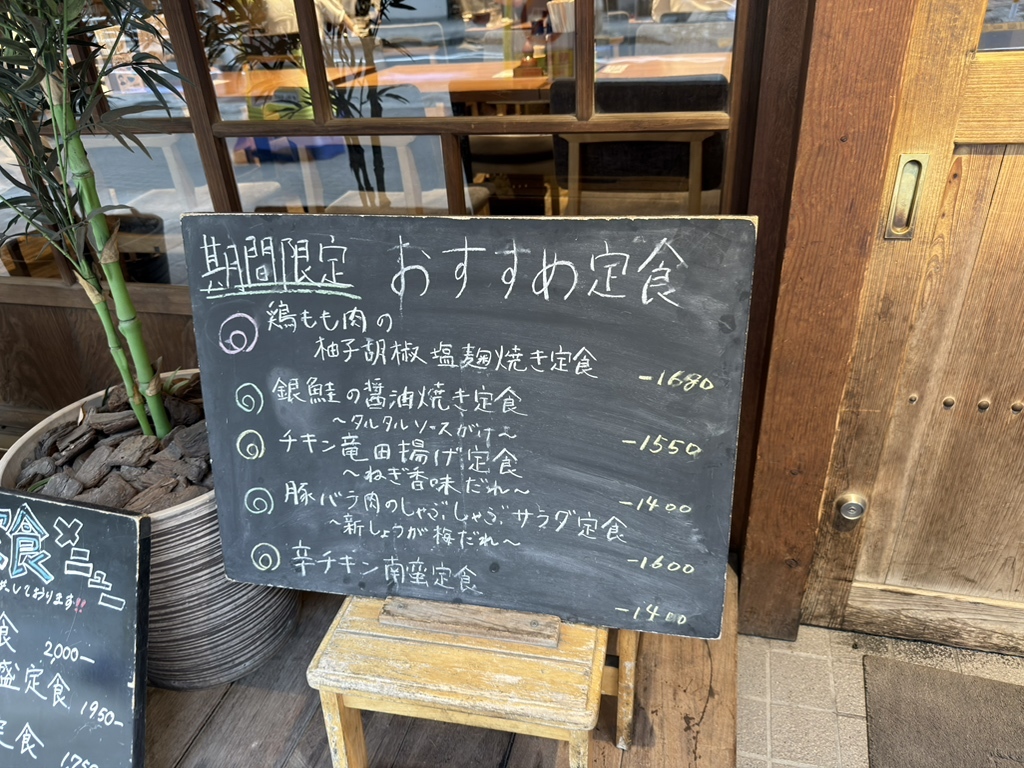 期間限定 おすすめ定食
鶏もも肉の
柚子胡椒塩麹焼き定食
-1680
銀鮭の醤油焼き定食
～タルタルソースがけ～
-1550
チキン竜田揚げ定食
～ねぎ香味だれ～
-1400
豚バラ肉のしゃぶしゃぶサラダ定食
～新しょうが梅だれ～
-1600
辛チキン南蛮定食
-1400
定食メニュー
しております!!
食
2,000-
盛定食
1950-
定食